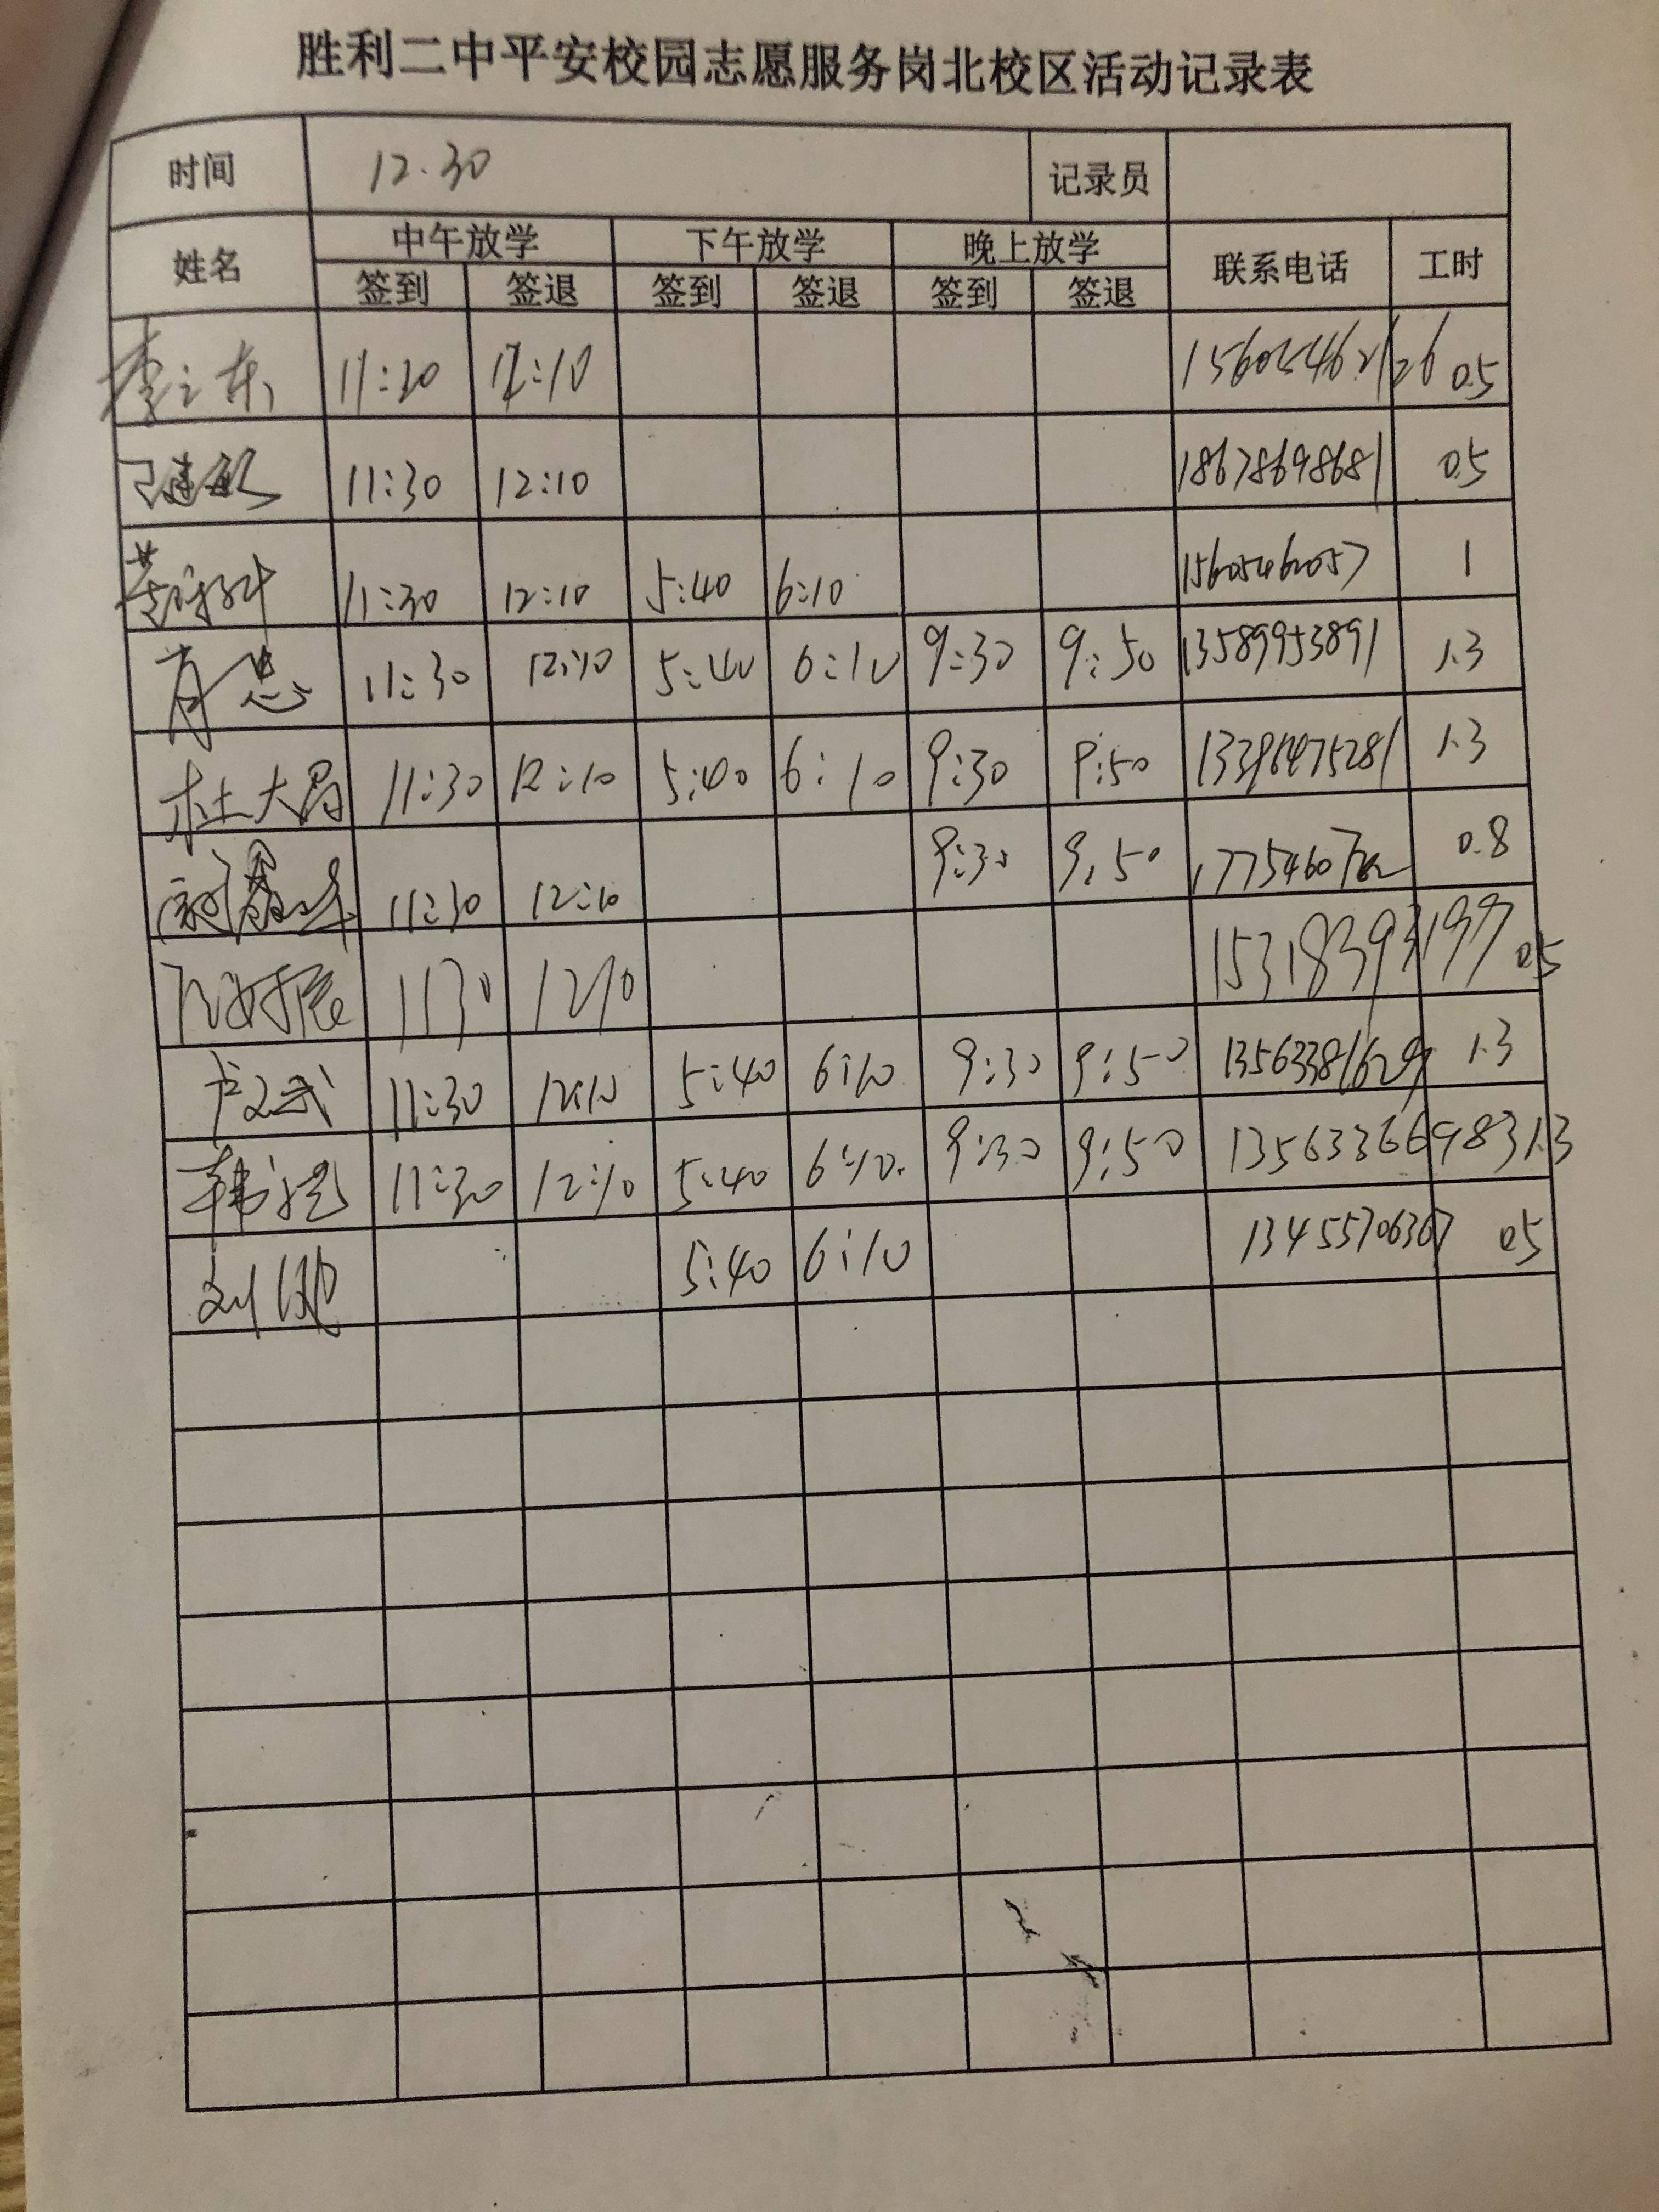 胜利二中平安校园志愿服务岗北校区活动记录表
时间 12.30 记录员
姓名 中午放学 下午放学 晚上放学 联系电话 工时
签到 签退 签到 签退 签到 签退
李之东 11:20 12:10 0.5
11:30 12:10 18678698681 0.5
11:30 12:10 5:40 6:10 15605462057 1
肖忠 11:30 12:10 5:40 6:10 9:30 9:50 13589953891 1.3
杜大勇 11:30 12:10 5:40 6:10 9:30 9:50 1.3
11:30 12:10 9:30 9:50 0.8
1130 1210 15318393199 0.5
卢文武 11:30 12:10 5:40 6:10 9:30 9:50 13563381629 1.3
韩 11:30 12:10 5:40 6:10. 9:30 9:50 13563366983 1.3
刘 5:40 6:10 13455706367 0.5